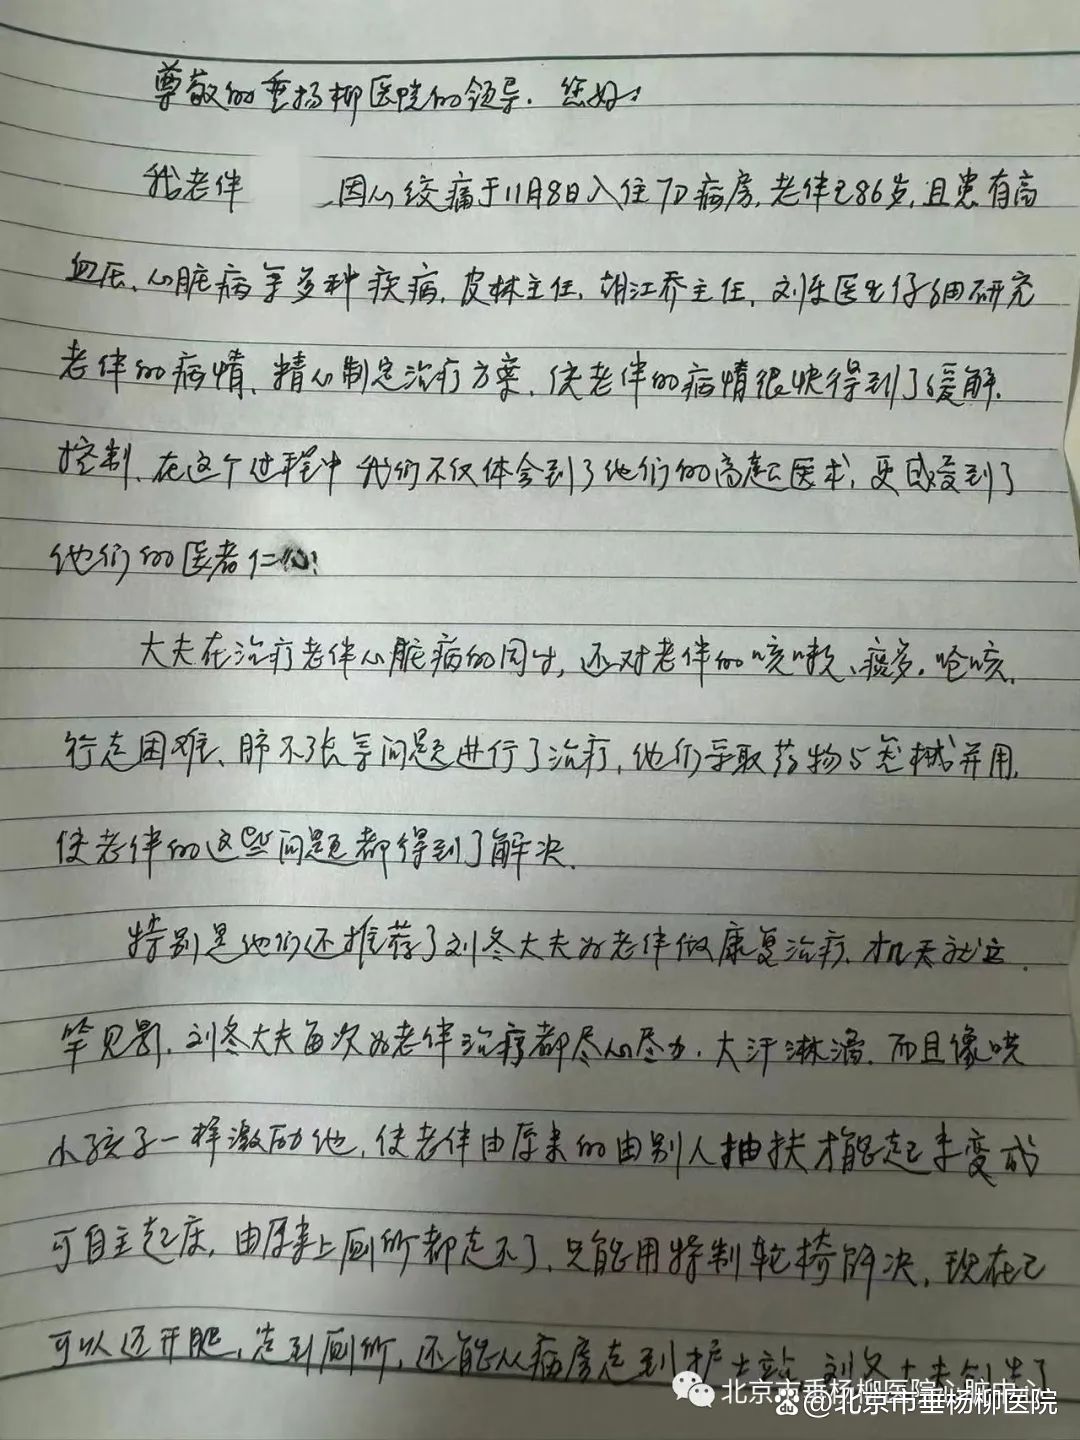 尊敬的垂杨柳医院的领导.您好:
我老伴 因心绞痛于11月8日入住7D病房,老伴已86岁,且患有高
血压、心脏病等多种疾病,皮林主任,胡江乔主任,刘乐医生仔细研究
老伴的病情、精心制定治疗方案,使老伴的病情很快得到了缓解.
控制、在这个过程中我们不仅体会到了他们的高超医术,更感受到了
他们的医者仁心!
大夫在治疗老伴心脏病的同时,还对老伴的咳嗽、痰多.呛咳.
行走困难、肺不张等问题进行了治疗,他们采取药物与器械并用,
使老伴的这些问题都得到了解决.
特别是他们还推荐了刘冬大夫为老伴做康复治疗、才几天就立
竿见影,刘冬大夫每次为老伴治疗都尽心尽力,大汗淋漓.而且像哄
小孩子一样激励他,使老伴由原来的由别人抽扶才能起来变成
可自主起床,由原来上厕所都走不了,只能用特制轮椅解决,现在已
可以迈开腿,走到厕所,还能从病房走到护士站,刘冬大夫创造了
北京市垂杨柳医院心脏中心
@北京市垂杨柳医院